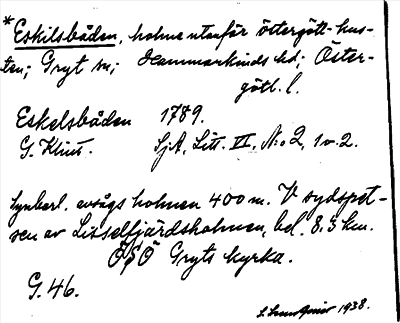 *Eskilsbåden, holme utanför östergött-kus-
ten; Gryt sn; Hammarkinds hd; Öster-
götl. l.
Eskelsbåden 1789.
G. Klint. SjA, Litt. VI, N:o 2, 1 o. 2.
Synberl. avsågs holmen 400 m. V sydspet-
sen av Lisselfjärdsholmen, bel. 8.5 km.
OSO Gryts kyrka.
G. 46.
1938.